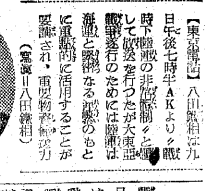 【東京電話】八田鐵相は九
日午後七時半AKより〝戰
時下陸運の非常體制〟と題
して放送を行つたが大東亞
戰爭遂行のためには陸運は
海運と緊密なる連繋のもと
に重點的に運用することが
要請され、重要物資輸送力
(寫眞=八田鐵相)